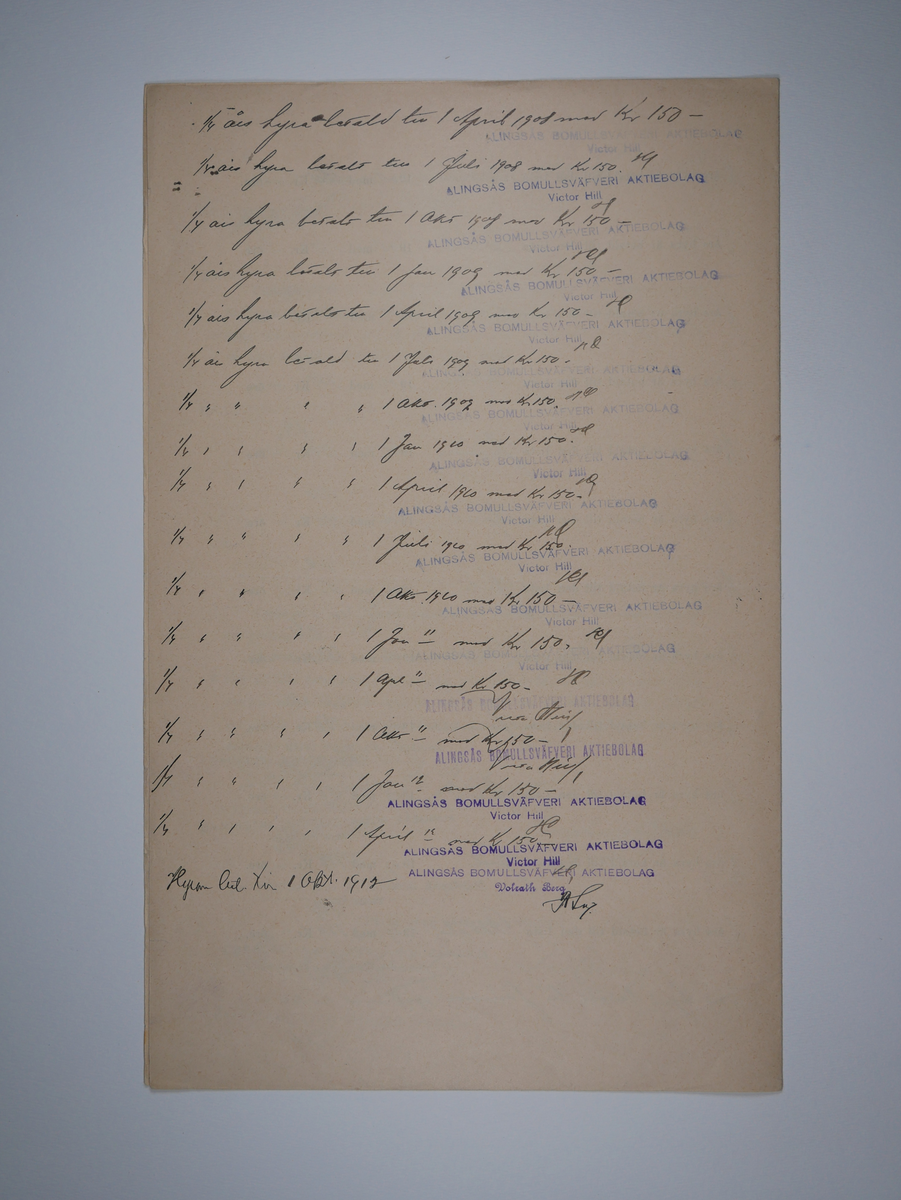 1/4 års hyra betald till 1 April 1908 med Kr 150 —
ALINGSÅS BOMULLSVÄFVERI AKTIEBOLAG
Victor Hill
1/4 års hyra betalt till 1 Juli 1908 med Kr 150.
ALINGSÅS BOMULLSVÄFVERI AKTIEBOLAG
Victor Hill
1/4 års hyra betalt till 1 Okt 1908 med Kr 150 —
ALINGSÅS BOMULLSVÄFVERI AKTIEBOLAG
Victor Hill
1/4 års hyra betalt till 1 Jan 1909 med Kr 150 —
ALINGSÅS BOMULLSVÄFVERI AKTIEBOLAG
Victor Hill
1/4 års hyra betalt till 1 April 1909 med Kr 150 —
ALINGSÅS BOMULLSVÄFVERI AKTIEBOLAG
Victor Hill
1/4 års hyra betald till 1 Juli 1909 med Kr 150 -
ALINGSÅS BOMULLSVÄFVERI AKTIEBOLAG
Victor Hill
1/4 " " " " 1 Okt. 1909 med Kr 150.
ALINGSÅS BOMULLSVÄFVERI AKTIEBOLAG
Victor Hill
1/4 " " " " 1 Jan 1910 med Kr 150.
ALINGSÅS BOMULLSVÄFVERI AKTIEBOLAG
Victor Hill
1/4 " " " " 1 April 1910 med Kr 150 -
ALINGSÅS BOMULLSVÄFVERI AKTIEBOLAG
Victor Hill
1/4 " " " " 1 Juli 1910 med Kr 150.
ALINGSÅS BOMULLSVÄFVERI AKTIEBOLAG
Victor Hill
1/4 " " " " 1 Okt. 1910 med Kr 150 —
ALINGSÅS BOMULLSVÄFVERI AKTIEBOLAG
Victor Hill
1/4 " " " " 1 Jan 11 med Kr 150.
ALINGSÅS BOMULLSVÄFVERI AKTIEBOLAG
Victor Hill
1/4 " " " " 1 Apl 11 med Kr 150 —
ALINGSÅS BOMULLSVÄFVERI AKTIEBOLAG
1/4 " " " " 1 Okt 11 med Kr 150 —
ALINGSÅS BOMULLSVÄFVERI AKTIEBOLAG
1/4 " " " " 1 Jan 12 med Kr 150 —
ALINGSÅS BOMULLSVÄFVERI AKTIEBOLAG
Victor Hill
1/4 " " " " 1 April 12 med Kr 150 —
ALINGSÅS BOMULLSVÄFVERI AKTIEBOLAG
Victor Hill
Hyran bet. till 1 Okt. 1912
ALINGSÅS BOMULLSVÄFVERI AKTIEBOLAG
Volrath Berg